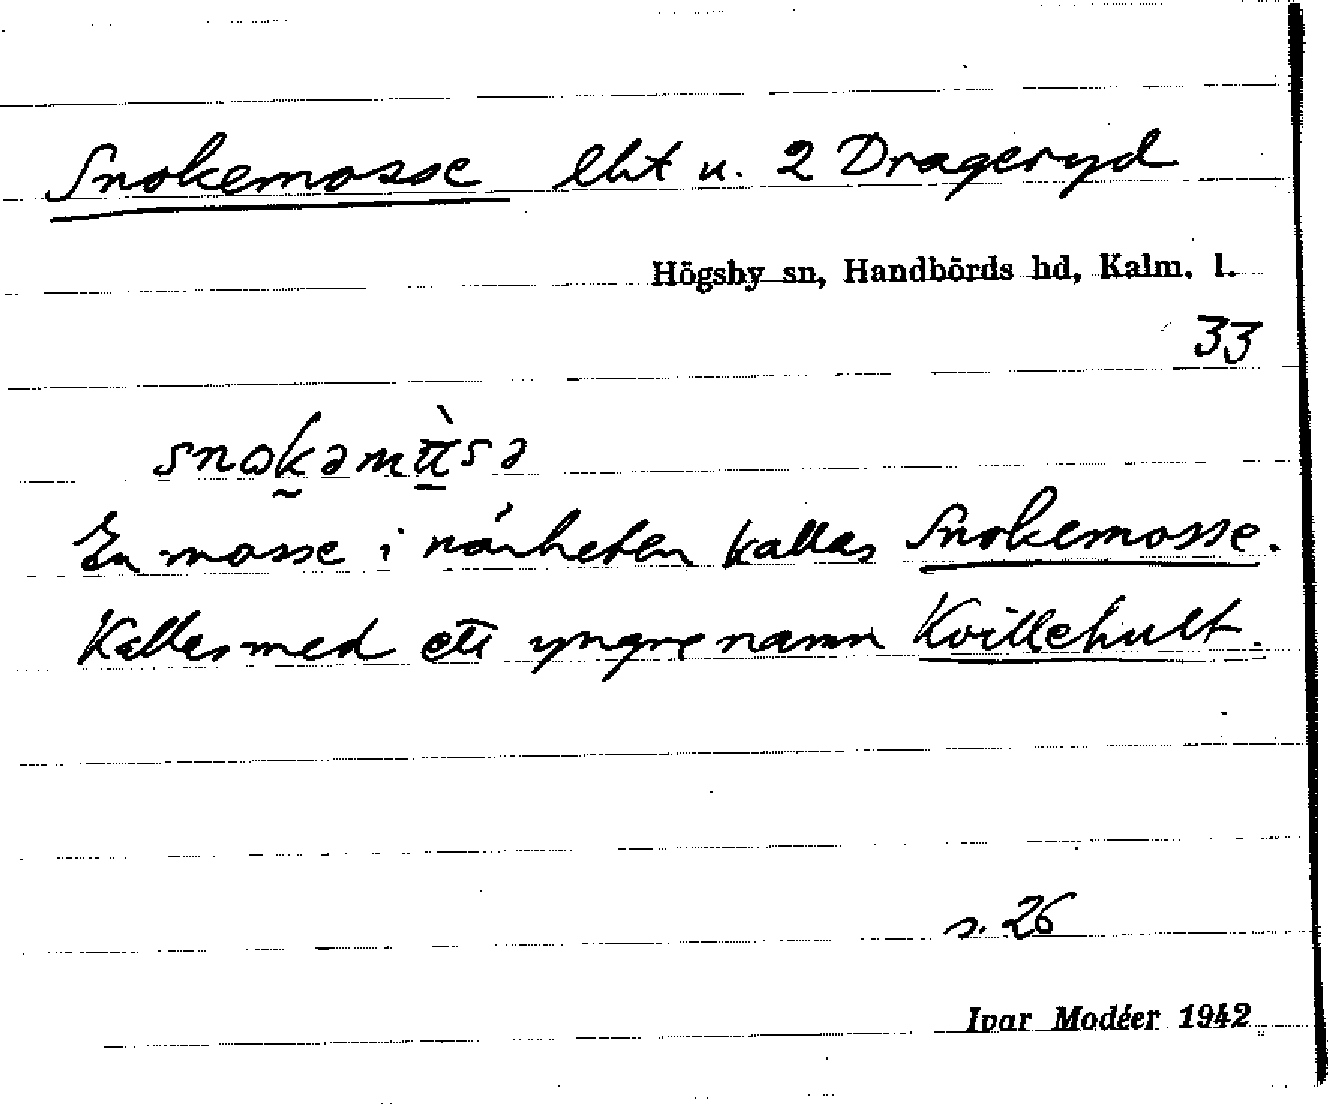 Snokemosse lht u. 2 Drageryd
Högsby sn, Handbörds hd, Kalm. l.
33
En mosse i närheten kallas Snokemosse.
Kallas med ett yngre namn Kvillehult.
s. 26
Ivar Modéer 1942